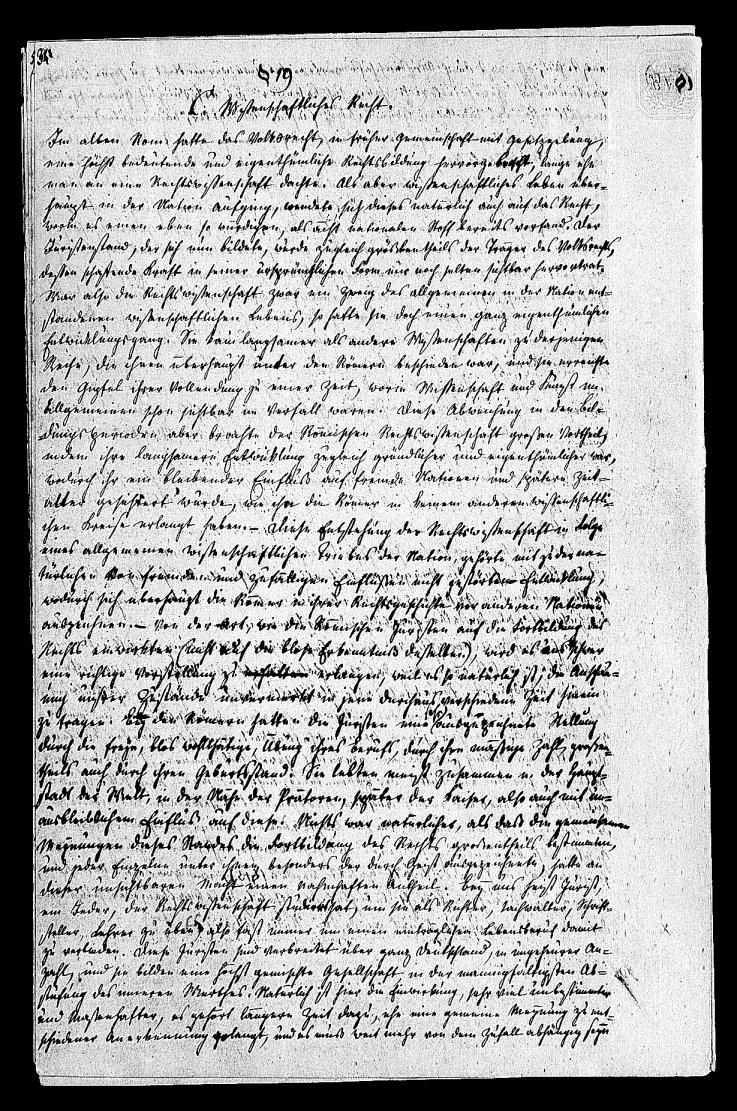 § 19
Wissenschaftliches Recht.
Im alten Rom hatte das Volksrecht, in früher Gemeinschaft mit Gesetzgebung,
eine höchst bedeutende und eigenthümliche Rechtsbildung hervorgebracht, lange ehe
man an eine Rechtswissenschaft dachte. Als aber wissenschaftliches Leben über-
haupt in der Nation aufging, wendete sich dieses natürlich auch auf das Recht,
worin es einen eben so würdigen, als ächt nationalen Stoff bereits vorfand. Der
Juristenstand, der sich nun bildete, wurde zugleich größtentheils der Träger des Volksrechts,
dessen schaffende Kraft in seiner ursprünglichen Form nur noch selten sichtbar hervortrat.
War also die Rechtswissenschaft zwar ein Zweig des allgemeinen in der Nation ent-
standenen wissenschaftlichen Lebens, so hatte sie doch einen ganz eigenthümlichen
Entwicklungsgang. Sie kam langsamer als andere Wissenschaften zu derjenigen
Reife, die ihnen überhaupt unter den Römern beschieden war, und sie erreichte
den Gipfel ihrer Vollendung zu einer Zeit, worin Wissenschaft und Kunst im
Allgemeinen schon sichtbar im Verfall waren. Diese Abweichung in den Bil-
dungsperioden aber brachte der Römischen Rechtswissenschaft großen Vortheil,
indem ihre langsamere Entwicklung zugleich gründlicher und eigenthümlicher war,
wodurch ihr ein bleibender Einfluß auf fremde Nationen und spätere Zeit-
alter gesichert wurde, wie ihn die Römer in keinem anderen wissenschaftli-
chen Kreise erlangt haben. – Diese Entstehung der Rechtswissenschaft in Folge
eines allgemeinen wissenschaftlichen Triebes der Nation, gehörte mit zu der na-
türlichen von fremden und zufälligen Einflüssen nicht gestörten Entwicklung,
wodurch sich überhaupt die Römer in ihrer Rechtsgeschichte vor anderen Nationen
auszeichnen. – Von der Art, wie die Römischen Juristen auf die Fortbildung des
Rechts einwirkten (nicht auf die blose Erkenntniß desselben), wird es uns schwer
eine richtige Vorstellung zu erlangen, weil es so natürlich ist, die Anschau-
ung unsrer Zustände unvermerkt in jene durchaus verschiedene Zeit hinein
zu tragen. Bey den Römern hatten die Juristen eine ausgezeichnete Stellung
durch die freye, blos wohlthätige, Übung ihres Berufs, durch ihre mäßige Zahl, großen-
theils auch durch ihren Geburtsstand. Sie lebten meist zusammen in der Haupt-
stadt der Welt, in der Nähe der Prätoren, später der Kaiser, also auch mit un-
ausbleiblichem Einfluß auf diese. Nichts war natürlicher, als daß die gemeinsamen
Meynungen dieses Standes die Fortbildung des Rechts großentheils bestimmten,
und jeder Einzelne unter ihnen, besonders der durch Geist ausgezeichnete, hatte an
dieser unsichtbaren Macht einen nahmhaften Antheil. Bey uns heißt Jurist,
ein Jeder, der Rechtswissenschaft studiert hat, um sie als Richter, Sachwalter, Schrift-
steller, Lehrer zu üben, also fast immer um einen einträglichen Lebensberuf damit
zu verbinden. Diese Juristen sind verbreitet über ganz Deutschland, in ungeheurer An-
zahl, und sie bilden eine höchst gemischte Gesellschaft in der mannigfaltigsten Ab-
stufung des inneren Werthes. Natürlich ist hier die Einwirkung, sehr viel unbestimmter
und massenhafter, es gehört längere Zeit dazu, ehe eine gemeine Meynung zu ent-
schiedener Anerkennung gelangt, und es muß weit mehr von dem Zufall abhängig seyn